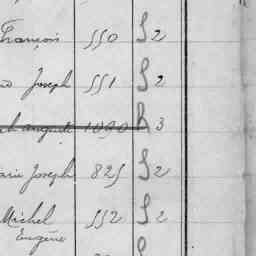 François 550 S 2
Joseph 551 S 2
auguste 1090 R 3
Joseph 825 S 2
Michel 552 S 2
Eugène